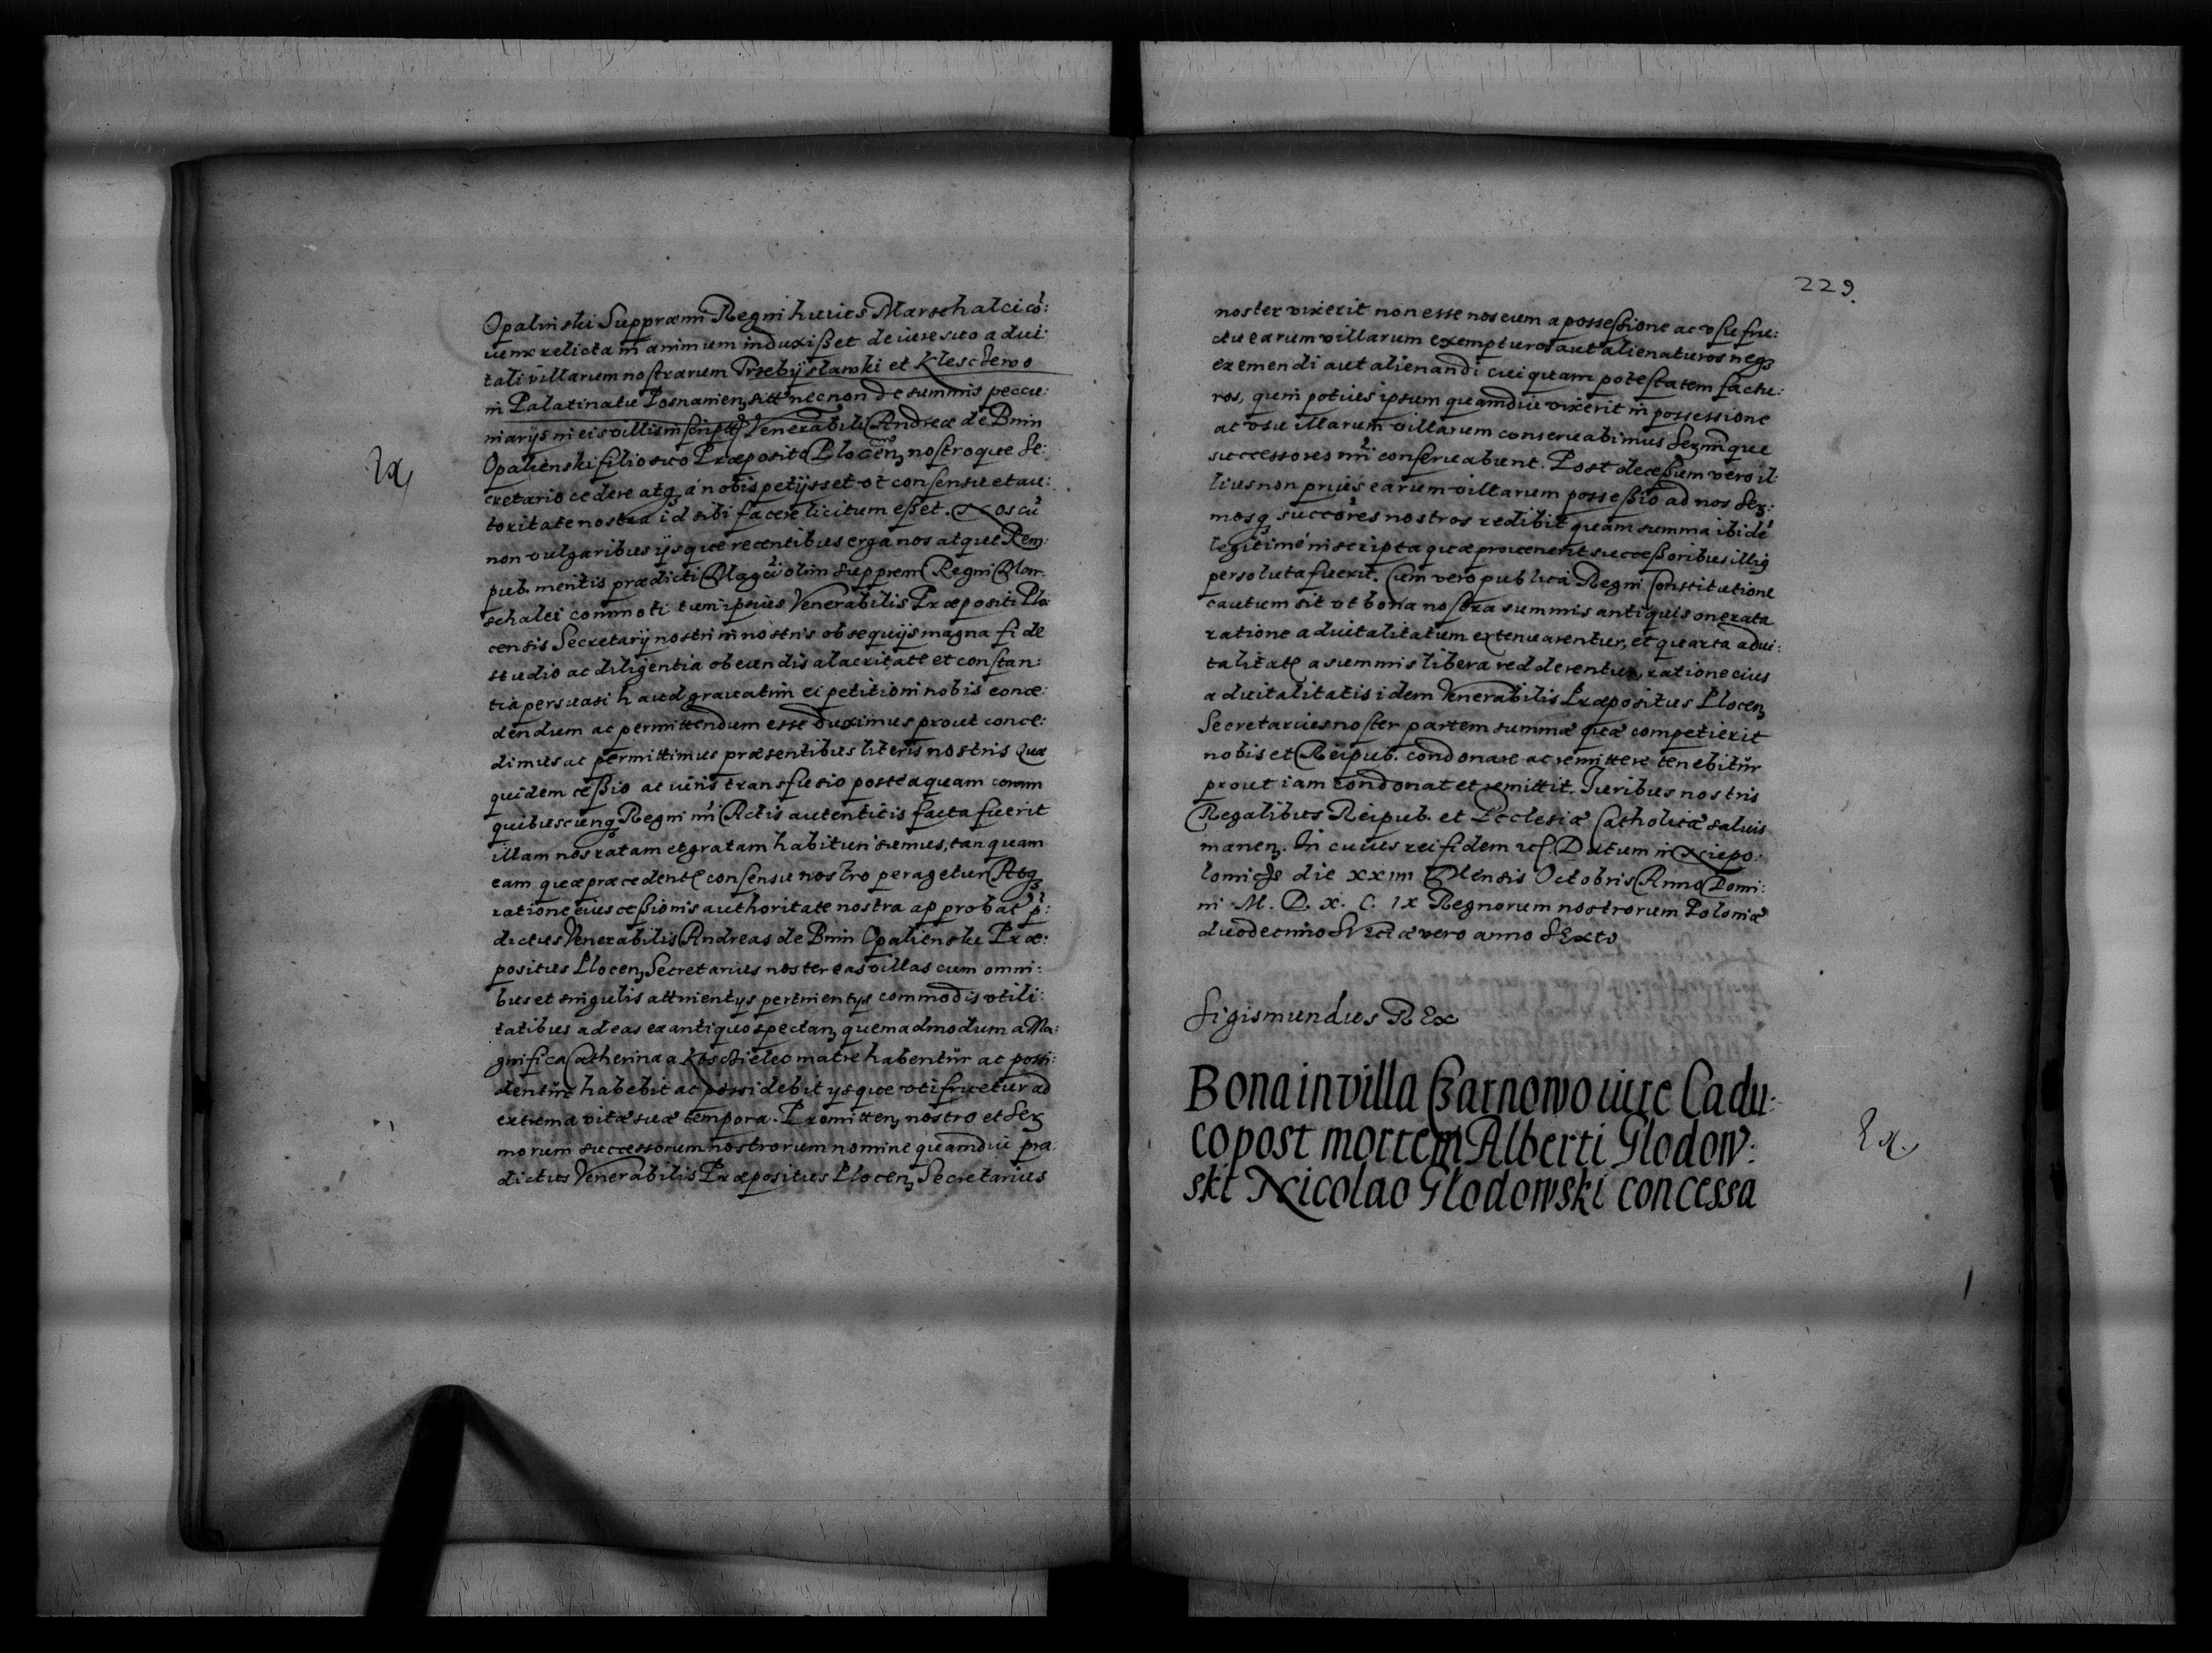 Opalinski Suppræmi Regni huius Marschalci cō:
iunx relicta in animum induxisset de iure suo aduitali:
tali villarum nostrarum Trsebyslawki et Klesczewo
in Palatinatu Posnanien sitt necnon de summis peccu:
niarys in eis villis inscriptt Venerabili Andreæ de Bnin
Opalienski filio suo Præposito Plocen nostroque Se:
cretario cedere atq a nobis petysset vt consensu et au:
toritate nostra id sibi facere licitum esset. Nos cū
non vulgaribus ysque recentibus erga nos atque Rem:
pub. meritis prædicti Magci olim suppremi Regni Mar:
schalci commoti tum ipsius Venerabilis Præpositi Plo:
censis Secretarij nostri in nostris obsequijs magna fide
studio ac diligentia obeundis alacritate et constan:
tia persuasi haud grauatim ei petitioni nobis conce:
dendum ac permittendum esse duximus prout conce:
dimus ac permittimus præsentibus literis nostris Quæ
quidem cessio ac iuris transfusio posteaquam coram
quibuscunq Regni nri Actis autenticis facta fuerit
illam nos ratam et gratam habituri sumus, tanquam
eam quæ præcedente consensu nostro peragetur Atq
ratione eius cessionis authoritate nostra approbat p:
dictus Venerabilis Andreas de Bnin Opalienski Præ:
positus Plocen Secretarius noster eas villas cum omni:
bus et singulis attinentys pertinentys commodis vtili:
tatibus ad eas ex antiquo spectan quemadmodum a Ma:
gnifica Catherina a Koscielec matre habentur ac possi:
dentur habebit ac possidebit ysque vti fruetur ad
extrema vitæ suæ tempora. Promitten nostro et Ser
morum successorum nostrorum nomine quamdiu præ
dictus Venerabilis Præpositus Plocen Secretarius
229.
noster vixerit non esse nos eum a possessione ac vsu fru:
ctu earum villarum exempturos aut alienaturos neq
exemendi aut alienandi cuiquam potestatem factu:
ros, quin potius ipsum quamdiu vixerit in possessione
ac vsu illarum villarum conseruabimus Sermique
successores nri conseruabunt. Post decessum vero il:
lius non prius earum villarum possessio ad nos Ser:
mosq succores nostros redibit quam summa ibidē
legitime inscripta quæ prouenerit successoribus illiq
persoluta fuerit. Cum vero publica Regni Constitutione
cautum sit vt bona nostra summis antiquis onerata
ratione aduitalitatum extenuarentur, et quarta adui:
talitate a summis libera redderentur, ratione eius
aduitalitatis idem Venerabilis Præpositus Plocen
Secretarius noster partem summæ quæ competierit
nobis et Reipub. condonare ac remittere tenebitur
prout iam condonat et remittit. Iuribus nostris
Regalibus Reipub. et Ecclesiæ Catholicæ saluis
manen. In cuius rei fidem Datum in Niepo:
lomicze die xxiiii Mensis Octobris Anno Domi:
ni M. D. X. C. IX Regnorum nostrorum Poloniæ
duodecimo Sueciæ vero anno Sexto
Sigismundus REx
Bona in villa Czarnowo iure Cadu:
co post mortem Alberti Glodow:
ski Nicolao Glodowski concessa
Ex